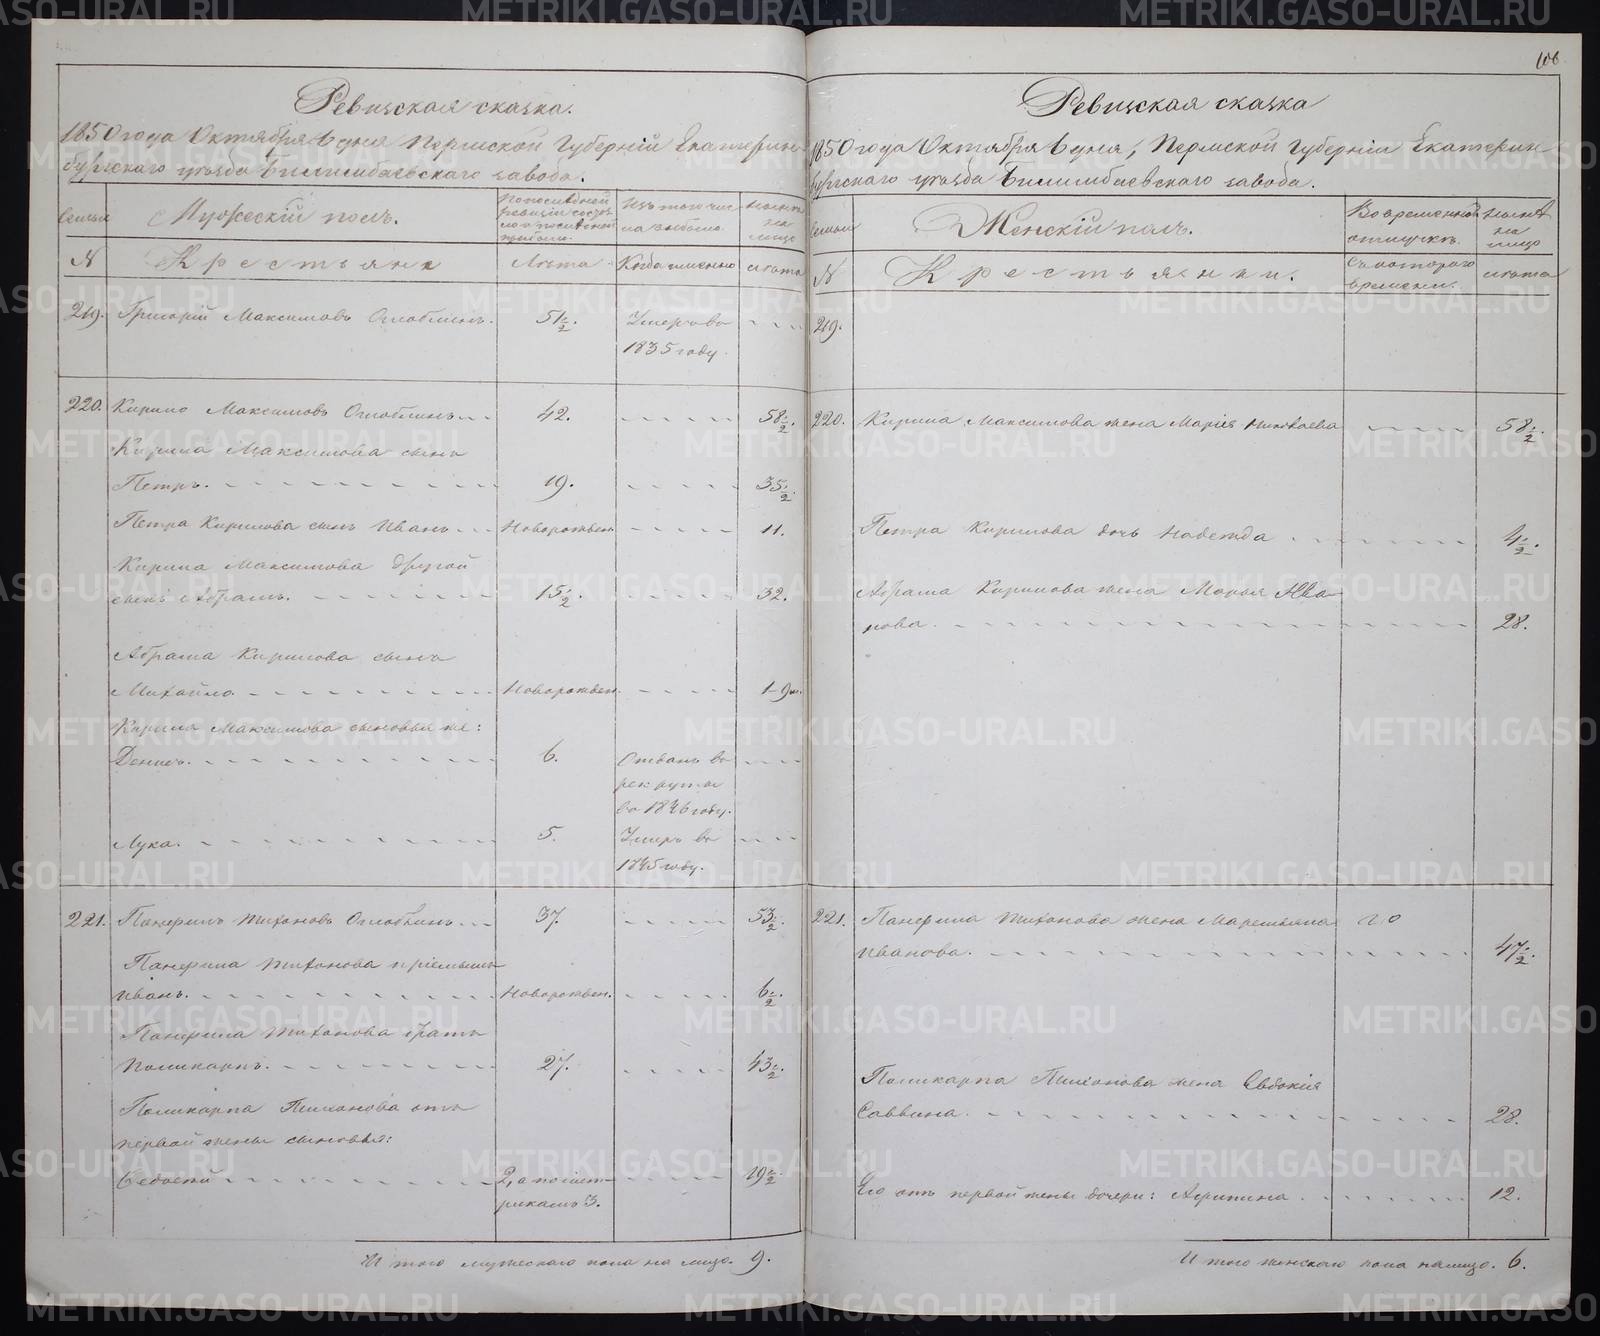 106
Ревизская сказка.
1850 года Октября 6 дня Пермской Губернiи Екатерин
бургскаго уѣзда Билимбаевскаго завода.
Семьи
Мужескiй полъ.
По последней
ревизiи состо
яло и после оной
прибыло.
Изъ того чис
ла выбыло.
Нынѣ
на
лицо
N
Крестьяне
Лѣта
Когда именно
лѣта
219. Григорiй Максимовъ Оглоблинъ. 51½. Умеръ въ
1835 году.
220. Кирило Максимовъ Оглоблинъ 42. 58½.
Кирила Максимова сынъ
Петръ. 19. 35½.
Петра Кирилова сынъ Иванъ Новорожден 11.
Кирила Максимова другой
сынъ Абрамъ. 15½. 32.
Абрама Кирилова сынъ
Михайло. Новорожден. 1-9м.
Кирила Максимова сыновья же:
Денисъ. 6. Отданъ въ
рекруты
въ 1846 году.
Лука. 5. Умеръ въ
1845 году.
221. Панфилъ Тихоновъ Оглоблинъ 37. 53½.
Панфила Тихонова прiемышъ
Иванъ. Новорожден. 6½.
Панфила Тихонова братъ
Поликарпъ. 27. 43½.
Поликарпа Тихонова отъ
первой жены сыновья:
Севастей 2, а по мет-
рикамъ 3. 19½.
И того мужескаго пола на лицо. 9.
Ревизская сказка
1850 года Октября 6 дня, Пермской Губернiи Екатерин
бургскаго уѣзда Билимбаевскаго завода.
Семьи
Женскiй полъ.
Во временной
отлучкѣ.
Нынѣ
на
лицо
N
Крестьянки.
Съ котораго
времени.
лѣта
219.
220. Кирила Максимова жена Марiя Николаева 58½.
Петра Кирилова дочь Надежда 4½.
Абрама Кирилова жена Марья Ива
нова. 28.
221. Панфила Тихонова жена Маремьяна
Иванова. 47½.
Поликарпа Тихонова жена Евдокiя
Саввина. 28.
Его отъ первой жены дочери: Агрипина 12.
И того женскаго пола налицо. 6.
METRIKI.GASO-URAL.RU